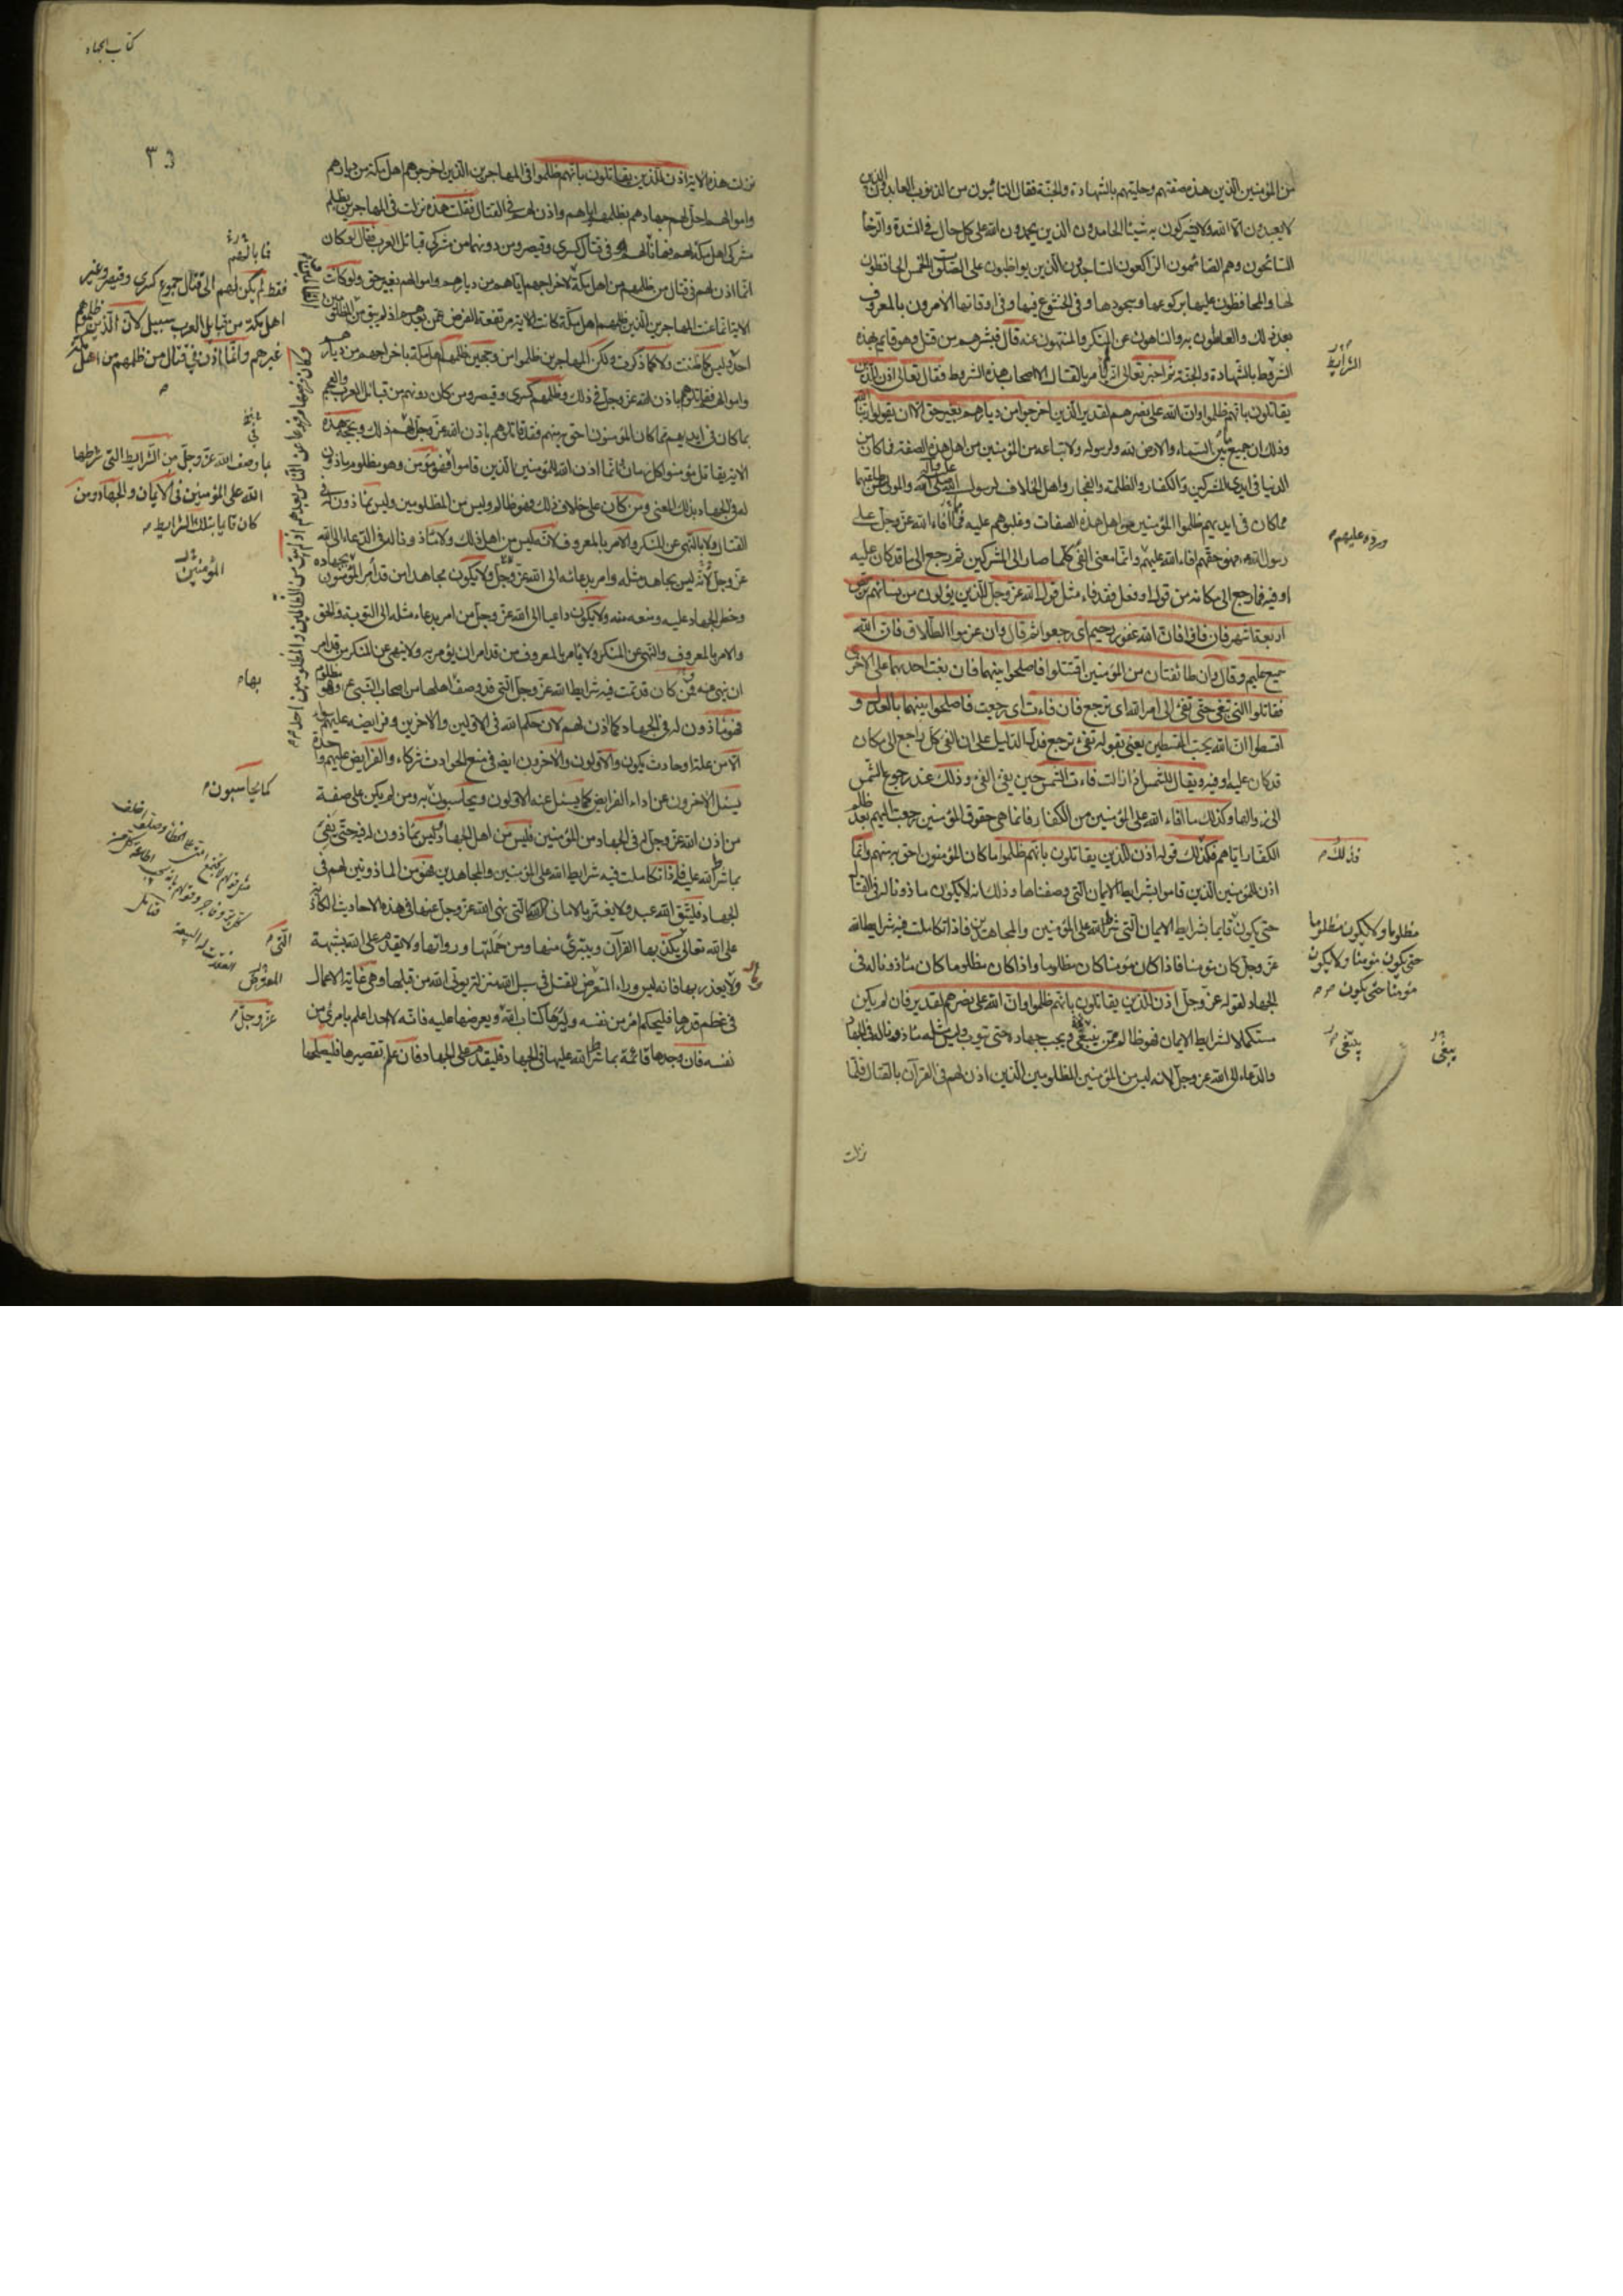 من المؤمنين الذين هذه صفتهم وحليتهم بالشهادة والجنة فقال التائبون من الذنوب العابدون الذين
لا يعبدون الا الله ولا يشركون به شيئا الحامدون الذين يحمدون الله على كل حال في الشدة والرخاء
السائحون وهم الصائمون الراكعون الساجدون الذين يواظبون على الصلوات الخمس الحافظون
لها والمحافظون عليها بركوعها وسجودها وفي الخشوع فيها وفي اوقاتها الامرون بالمعروف
بعد ذلك والعاملون به والناهون عن المنكر والمنتهون عنه قال فبشر هم من قتل وهو قائم بهذه
الشروط بالشهادة والجنة ثم اخبر تعالى انه لم يامر بالقتال الا اصحاب هذه الشروط فقال تعالى اذن للذين
يقاتلون بانهم ظلموا وان الله على نصرهم لقدير الذين اخرجوا من ديارهم بغير حق الا ان يقولوا ربنا الله
وذلك ان جميع ما بين السماء والارض لله ولرسوله ولاتباعه من المؤمنين من اهل هذه الصفة فما كان من
الدنيا في ايدي المشركين والكفار والظلمة والفجار واهل الخلاف لرسول الله صلى الله عليه وآله والمولي عن طاعتهما
مما كان في ايديهم ظلموا المؤمنين من اهل هذه الصفات وغلبوهم عليه مما افاء الله عز وجل على
رسول الله فهو حقهم افاء الله عليهم وانما معنى الفيء كلما صار الى المشركين ثم رجع الى ما قد كان عليه
او فيه فما رجع الى مكانه من قول او فعل فقد فاء مثل قول الله عز وجل للذين يؤلون من نسائهم تربص
اربعة اشهر فان فاؤا فان الله غفور رحيم اي رجعوا ثم قال وان عزموا الطلاق فان الله
سميع عليم وقال وان طائفتان من المؤمنين اقتتلوا فاصلحوا بينهما فان بغت احديهما على الاخرى
فقاتلوا التي تبغي حتى تفيء الى امر الله اي ترجع فان فاءت اي رجعت فاصلحوا بينهما بالعدل و
اقسطوا ان الله يحب المقسطين يعني بقوله تفيء ترجع فذلك الدليل على ان الفيء كل راجع الى مكان
قد كان عليه او فيه ويقال للشمس اذا زالت فاءت الشمس حين يفيء الفيء وذلك عند رجوع الشمس
الى زوالها وكذلك ما افاء الله على المؤمنين من الكفار فانما هي حقوق المؤمنين رجعت اليهم بعد ظلم
الكفار اياهم فكذلك قوله اذن للذين يقاتلون بانهم ظلموا ما كان المؤمنون احق به منهم وانما
اذن للمؤمنين الذين قاموا بشرايط الايمان التي وصفناها وذلك انه لا يكون ماذونا له في القتال
حتى يكون قايما بشرايط الايمان التي شرط الله على المؤمنين والمجاهدين فاذا تكاملت فيه شرايط الله
عز وجل كان مؤمنا فاذا كان مؤمنا كان مظلوما واذا كان مظلوما كان ماذونا له في
الجهاد لقوله عز وجل اذن للذين يقاتلون بانهم ظلموا وان الله على نصرهم لقدير فان لم يكن
مستكملا لشرايط الايمان فهو ظالم ممن ينبغي ويجب جهاده حتى يتوب وليس مثله ماذونا له في الجهاد
والدعاء الى الله عز وجل لانه ليس من المؤمنين المظلومين الذين اذن لهم في القرآن بالقتال فلما
نزلت
الشرايط
وردوه عليهم
فذلك
مظلوما ولا يكون مظلوما
حتى يكون مؤمنا ولا يكون
مؤمنا حتى يكون
ينبغي
يبغي
كتاب الجهاد
نزلت هذه الاية اذن للذين يقاتلون بانهم ظلموا في المهاجرين الذين اخرجوهم اهل مكة من ديارهم
واموالهم احل لهم جهادهم بظلمهم اياهم واذن لهم في القتال فقلت هذه نزلت في المهاجرين بظلم
مشركي اهل مكة لهم فما بالهم في قتال كسرى وقيصر ومن دونهما من مشركي قبائل العرب فقال لو كان
انما اذن لهم في قتال من ظلمهم من اهل مكة لاخراجهم اياهم من ديارهم واموالهم بغير حق ولو كانت
الاية انما عنت المهاجرين الذين ظلمهم اهل مكة كانت الاية مرتفعة الفرض عمن بعدهم اذ لم يبق من الظالمين
احد وليس كما ظننت ولا كما ذكرت ولكن المهاجرين ظلموا من وجهين ظلمهم اهل مكة باخراجهم من ديارهم
واموالهم فقاتلوهم باذن الله عز وجل في ذلك وظلمهم كسرى وقيصر ومن كان دونهم من قبائل العرب والعجم
بما كان في ايديهم مما كان المؤمنون احق به منهم فقد قاتلوهم باذن الله عز وجل لهم في ذلك وبحجة هذه
الاية يقاتل مؤمنو كل زمان وانما اذن الله للمؤمنين الذين قاموا فهو مؤمن وهو مظلوم وماذون
له في الجهاد بذلك المعنى ومن كان على خلاف ذلك فهو ظالم وليس من المظلومين وليس بماذون له في
القتال ولا بالنهي عن المنكر والامر بالمعروف لانه ليس من اهل ذلك ولا ماذونا له في الدعاء الى الله
عز وجل لانه ليس يجاهد مثله وامر بدعائه الى الله عز وجل ولا يكون مجاهدا من قد امر المؤمنون بجهاده
وحظر الجهاد عليه ومنعه منه ولا يكون داعيا الى الله عز وجل من امر بدعاء مثله الى التوبة والحق
والامر بالمعروف والنهي عن المنكر ولا يامر بالمعروف من قد امر ان يؤمر به ولا ينهى عن المنكر من قد امر
ان ينهى عنه فمن كان قد تمت فيه شرايط الله عز وجل التي قد وصف اهلها من اصحاب النبي وهو مظلوم
فهو ماذون له في الجهاد كما اذن لهم لان حكم الله في الاولين والاخرين وفرايضه عليهم سواء
الا من علة او حادث يكون والاولون والاخرون ايضا في منع الحوادث شركاء والفرايض عليهم واحدة
يسئل الاخرون عن اداء الفرايض كما يسئل عنه الاولون ويحاسبون به ومن لم يكن على صفة
من اذن الله عز وجل له في الجهاد من المؤمنين فليس من اهل الجهاد وليس بماذون له فيه حتى يفيء
بما شرط الله عليه فاذا تكاملت فيه شرايط الله على المؤمنين والمجاهدين فهو من الماذونين لهم في
الجهاد فليتق الله عبد ولا يغتر بالاماني التي نهى الله عز وجل عنها في هذه الاحاديث الكاذبة
على الله تعالى يكذبها القرآن ويتبرئ منها ومن حملتها ورواتها ولا يقدم على الله بشبهة
ولا يعذر بها فانه ليس وراء المتعرض للقتل في سبيل الله منزلة يؤتى الله من قبلها وهي غاية الاعمال
في عظم قدرها فليحكم امرؤ من نفسه وليرها كتاب الله ويعرضها عليه فانه لا احد اعلم بامرئ من
نفسه فان وجدها قائمة بما شرط الله عليها في الجهاد فليقدم على الجهاد فان علم تقصيرها فليصلحها
فما بالهم
فقط لم يكن لهم الى قتال جموع كسرى وقيصر وغير
اهل مكة من قبايل العرب سبيل لان الذين ظلموهم
غيرهم وانما اذن في قتال من ظلمهم من اهل مكة
وكان فرضها مرفوعا عن الناس بعدهم اذ لم يبق من الظالمين والمظلومين احد
بما وصف الله عز وجل من الشرايط التي شرطها
الله على المؤمنين في الايمان والجهاد ومن
كان قايما بتلك الشرايط
المؤمنين
بها
كما يحاسبون
التي
المعترض
عز وجل